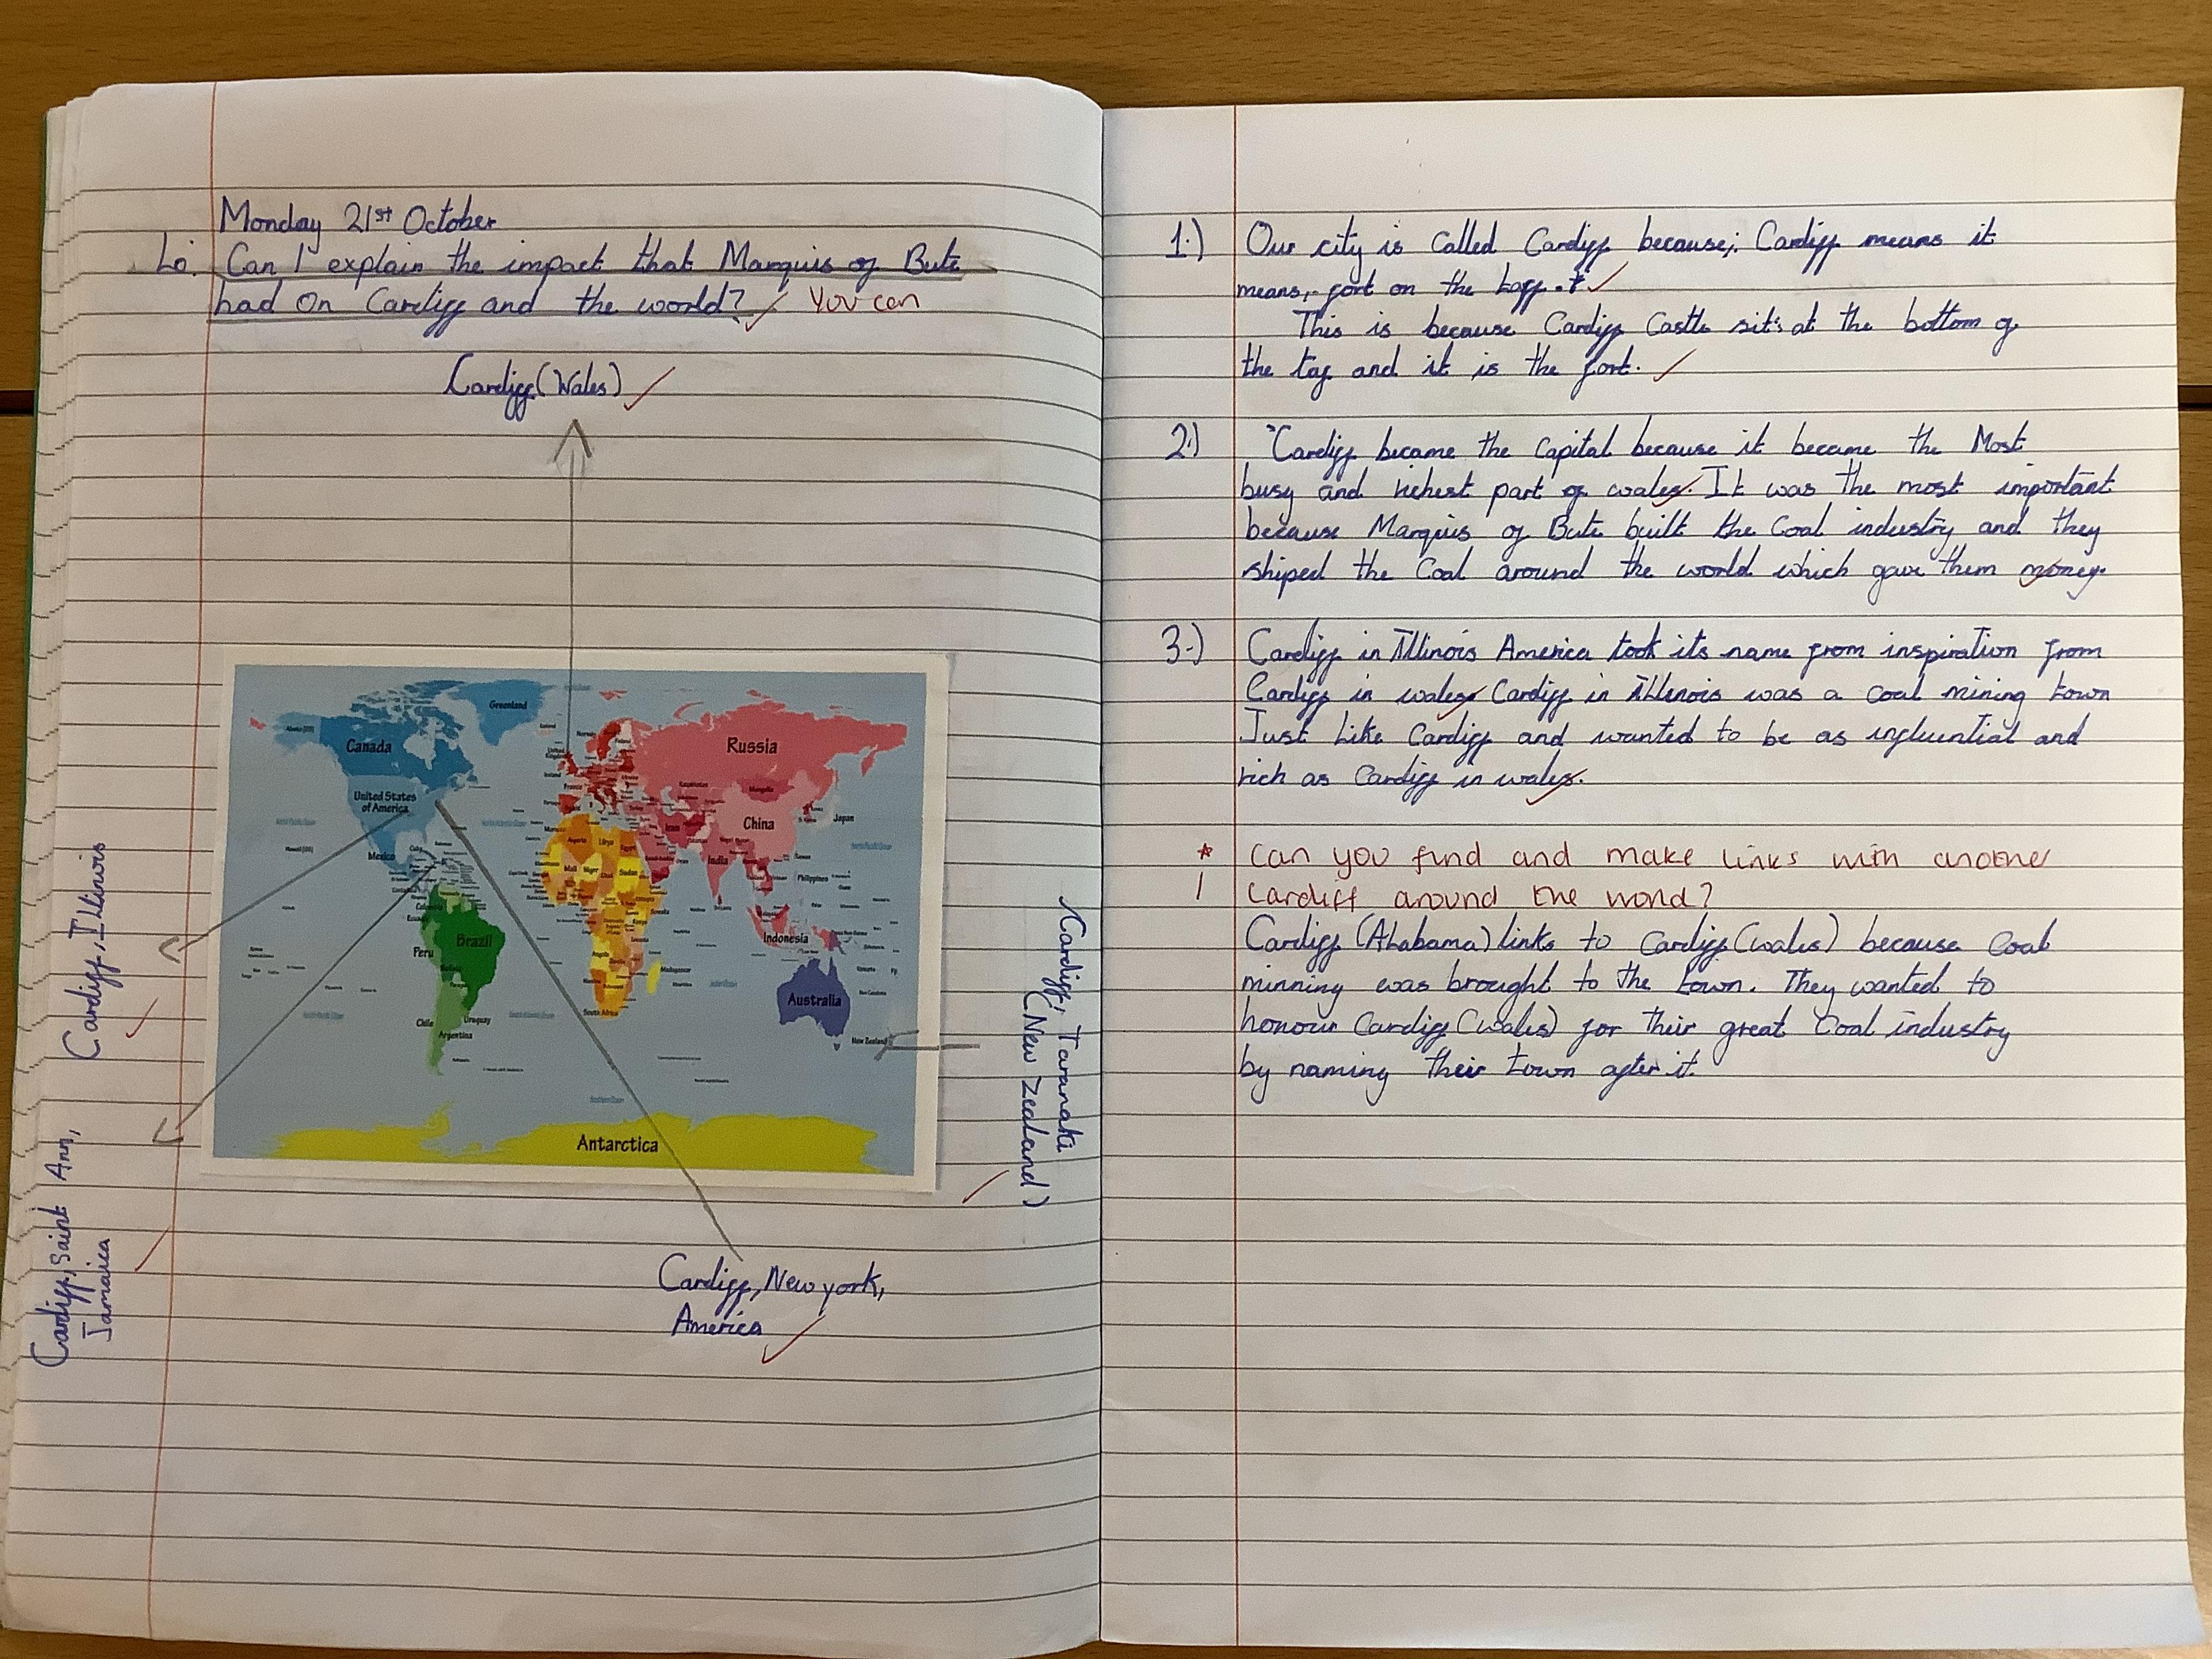 Monday 21st October
Lo. Can I explain the impact that Marquis of Bute
had on Cardiff and the world? You can
Cardiff (Wales)
Greenland
Canada
Russia
United States
of America
Norway
France
Mongolia
China
Japan
Mexico
Cuba
Algeria
Libya
Mali
Niger
Sudan
Iran
India
Philippines
Indonesia
Brazil
Peru
Chile
Uruguay
Argentina
Angola
Madagascar
South Africa
Australia
New Zealand
Antarctica
Cardiff, Illinois
Cardiff, Saint Ann,
Jamaica
Cardiff, Taranaki
(New Zealand)
Cardiff, New york,
America
1.) Our city is called Cardiff because; Cardiff means it
means, fort on the taff.
This is because Cardiff Castle sit's at the bottom of
the taf and it is the fort.
2.) Cardiff became the Capital because it became the Most
busy and richest part of wales. It was the most important
because Marquis of Bute built the Coal industry and they
shiped the Coal around the world which gave them money.
3.) Cardiff in Illinois America took its name from inspiration from
Cardiff in wales. Cardiff in Illenois was a coal mining town
Just Like Cardiff and wanted to be as influential and
rich as Cardiff in wales.
* can you find and make links with another
cardiff around the world?
Cardiff (Alabama) links to Cardiff (wales) because Coal
minning was brought to the town. They wanted to
honour Cardiff (wales) for their great Coal industry
by naming their town after it.